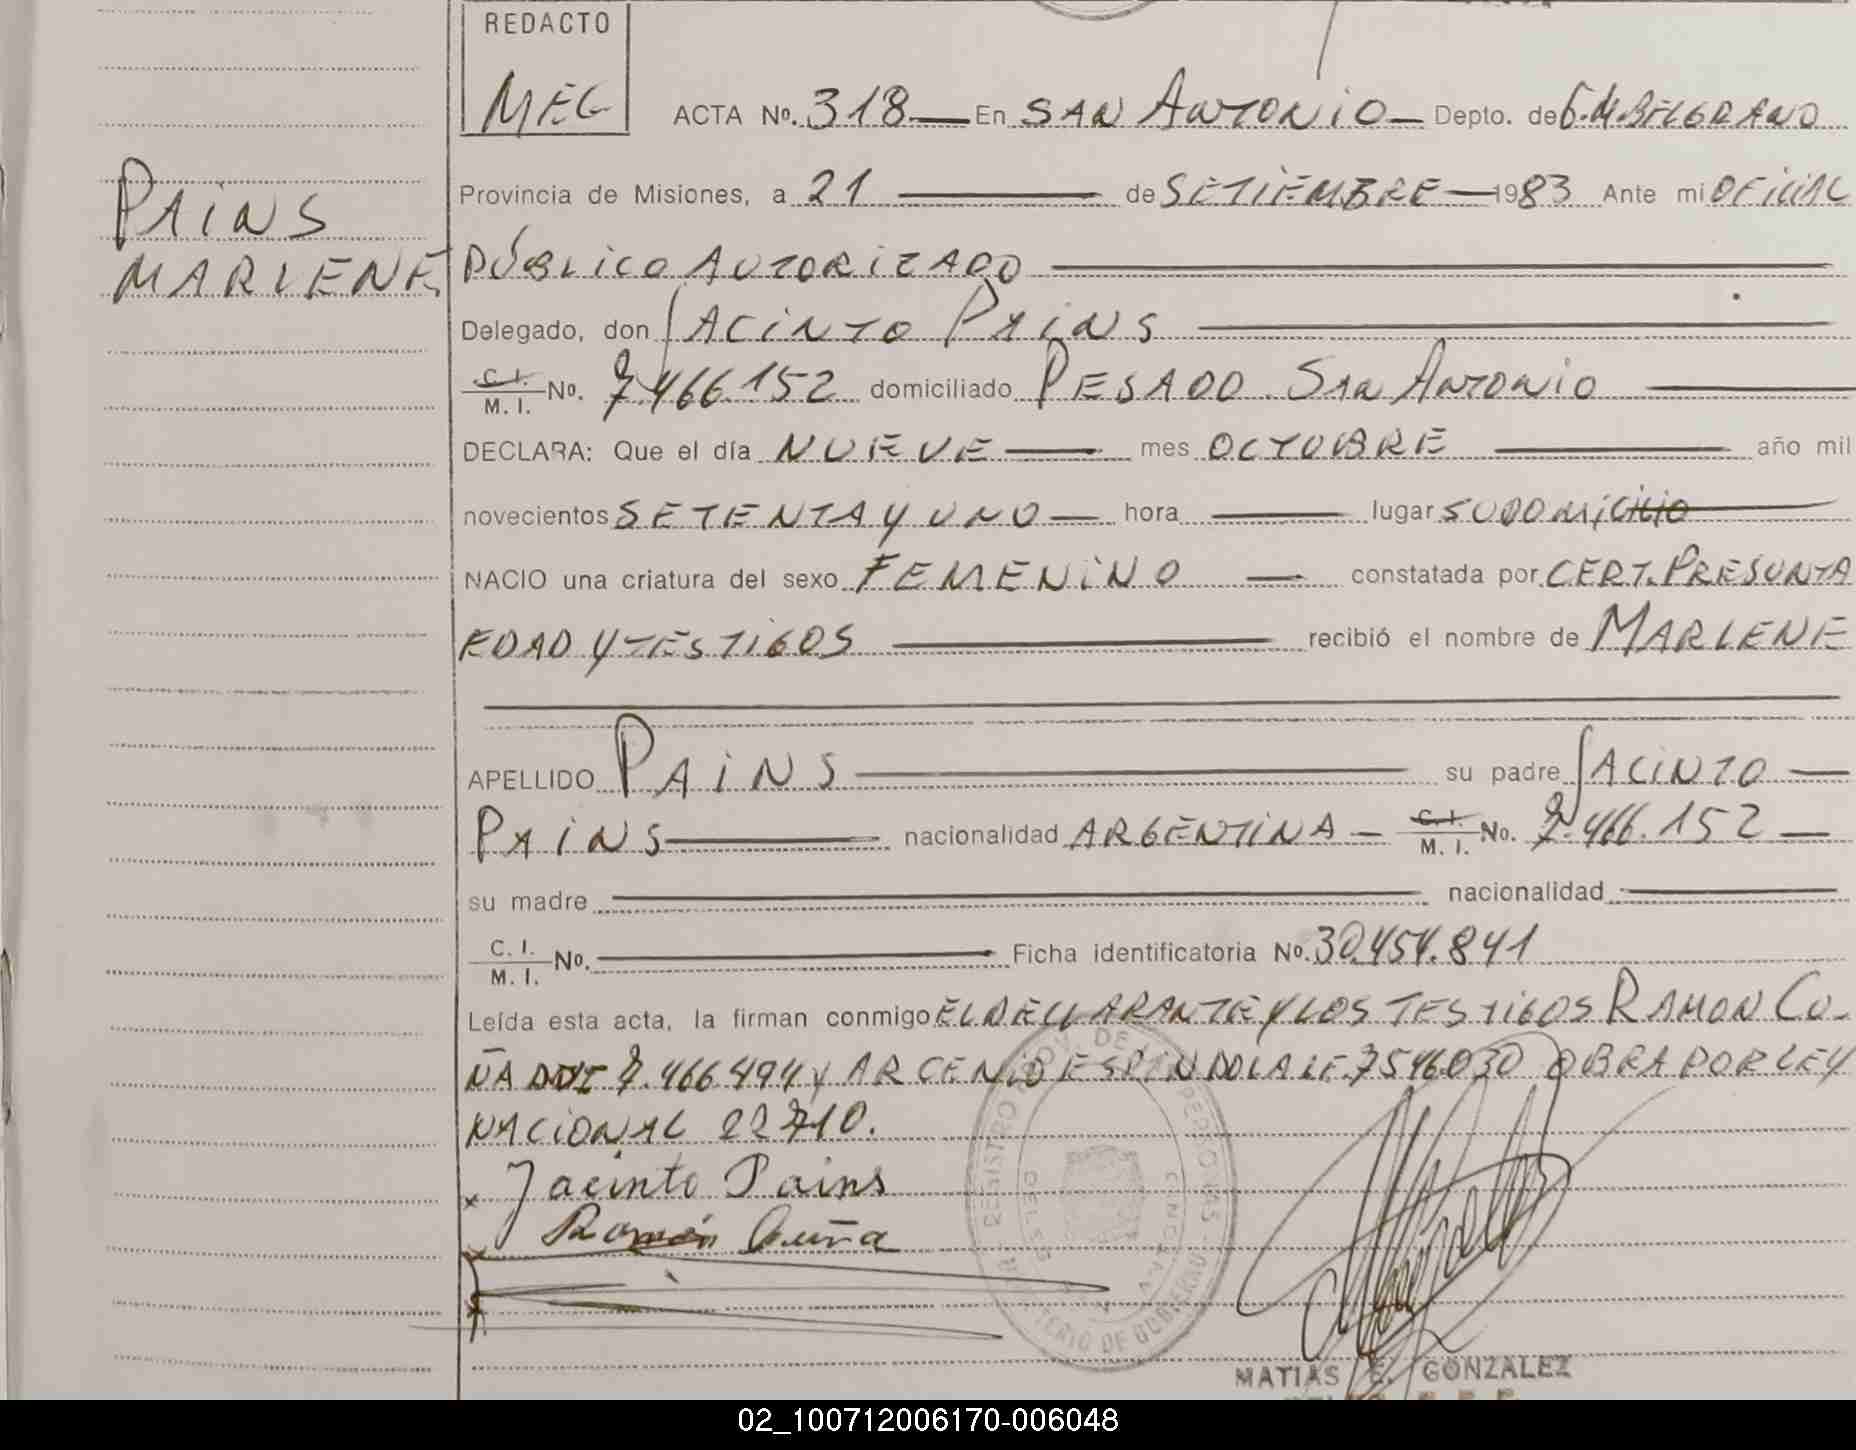 REDACTO
MEG
ACTA No. 318 En SAN ANTONIO Depto. de G.M.BELGRANO
PAINS
MARLENE
Provincia de Misiones, a 21 de SETIEMBRE 1983 Ante mi OFICIAL
PÚBLICO AUTORIZADO
Delegado, don JACINTO PAINS
C. I. M. I. No. 7.466.152 domiciliado PESADO. SAN ANTONIO
DECLARA: Que el día NUEVE mes OCTUBRE año mil
novecientos SETENTA Y UNO hora lugar SU DOMICILIO
NACIO una criatura del sexo FEMENINO constatada por CERT. PRESUNTA
EDAD Y TESTIGOS recibió el nombre de MARLENE
APELLIDO PAINS su padre JACINTO
PAINS nacionalidad ARGENTINA C. I. M. I. No. 7.466.152
su madre nacionalidad
C. I. M. I. No. Ficha identificatoria No. 30.454.841
Leída esta acta, la firman conmigo EL DECLARANTE Y LOS TESTIGOS RAMON CU-
ÑA DNI 7.466.494 Y ARCENIO ESPINDOLA LE.7546030 OBRA POR LEY
NACIONAL 22710.
x Jacinto Pains
x Ramón Cuña
REGISTRO DE PERSONAS
MINISTERIO DE GOBIERNO
MATIAS E. GONZALEZ
02_100712006170-006048